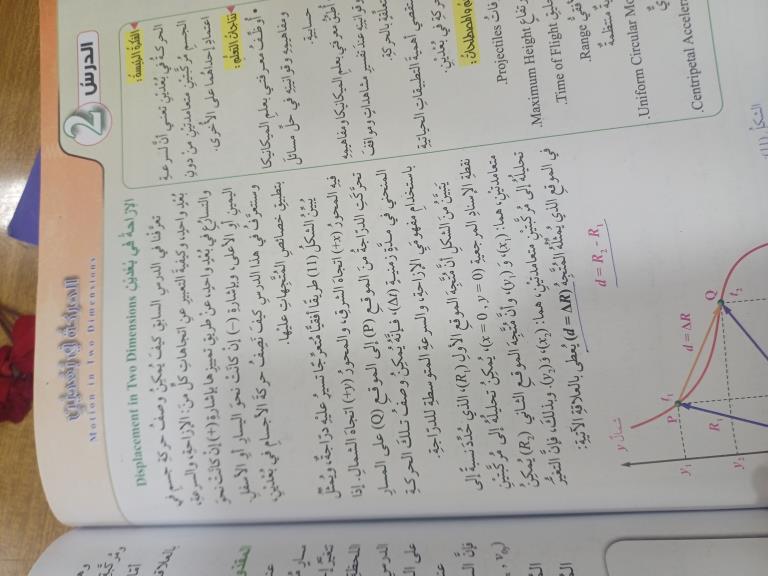 الدرس 2
الحركة في بعدين
Motion in Two Dimensions
الفكرة الرئيسة:
الحركة في بُعدَينِ تعني أنَّ لسرعةِ
الجسمِ مُركَّبتَينِ متعامدتَينِ من دونِ
اعتمادِ إحداهُما على الأُخرى.
نتاجات التعلم:
• أُوظِّفُ معرفتي بعلمِ الميكانيكا
ومفاهيمِهِ وقوانينِهِ في حلِّ مسائلَ
حسابيةٍ.
معرفتي بعلمِ الميكانيكا ومفاهيمِهِ
وقوانينِهِ عندَ تفسيرِ مشاهداتٍ ومواقفَ
تتعلَّقُ بالحركةِ.
أهميةَ التطبيقاتِ الحياتيةِ
حركةِ في بُعدَينِ.
والمصطلحات:
Projectiles.
Maximum Height
Time of Flight
Range.
Uniform Circular Mo
Centripetal Acceler
الإزاحة في بُعدين Displacement in Two Dimensions
تعرَّفْنا في الدرسِ السابقِ كيفَ يُمكِنُ وصفُ حركةِ جسمٍ في
بُعدٍ واحدٍ، وكيفيةَ التعبيرِ عنِ اتجاهاتِ كلٍّ منَ: الإزاحةِ، والسرعةِ،
والتسارُعِ في بُعدٍ واحدٍ، عن طريقِ تمييزِها بإشارةِ (+) إنْ كانَتْ نحوَ
اليمينِ أو الأعلى، وبإشارةِ (-) إنْ كانَتْ نحوَ اليسارِ أو الأسفلِ.
وسنتعرَّفُ في هذا الدرسِ كيفَ نَصِفُ حركةَ الأجسامِ في بُعدَينِ،
بتطبيقِ خصائصِ المُتَّجِهاتِ عليْها.
يُبيِّنُ الشكلُ (11) طريقًا أفقيًّا متعرِّجًا تسيرُ عليْهِ درّاجةٌ، ويُمثِّلُ
فيهِ المحورُ (+x) اتجاهَ الشرقِ، والمحورُ (+y) اتجاهَ الشمالِ. إذا
تحرَّكَتِ الدرّاجةُ منَ الموقعِ (P) إلى الموقعِ (Q) على المسارِ
المنحني في مدَّةٍ زمنيةٍ (Δt)، فإنَّهُ يُمكِنُ وصفُ تلكَ الحركةِ
باستخدامِ مفهومَيِ الإزاحةِ، والسرعةِ المتوسطةِ للدرّاجةِ.
يتبيَّنُ منَ الشكلِ أنَّ مُتَّجِهَ الموقعِ الأولِ (R₁)، الذي حُدِّدَ نسبةً إلى
نقطةِ الإسنادِ المرجعيةِ (x = 0 , y = 0)، يُمكِنُ تحليلُهُ إلى مُركَّبتَينِ
متعامدتَينِ، هما: (x₁)، و (y₁)، وأنَّ مُتَّجِهَ الموقعِ الثاني (R₂) يُمكِنُ
تحليلُهُ إلى مُركَّبتَينِ متعامدتَينِ، هما: (x₂)، و (y₂). وبذلكَ، فإنَّ التغيُّرَ
في الموقعِ الذي يُمثِّلُهُ المُتَّجِهُ (d = ΔR) يُعطى بالعلاقةِ الآتيةِ:
d = R₂ - R₁
y شمال
P
t₁
d = ΔR
Q
t₂
y₁
y₂
R₁
الشكل (11)